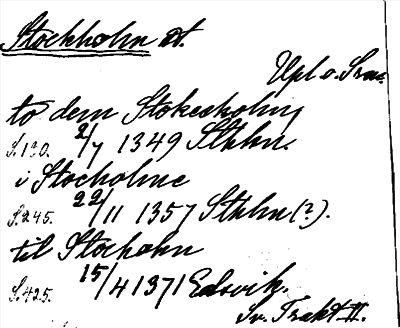 Stockholm st.
Upl. o. Srm.
to dem Stokesholm
S. 130. 2/7 1349 Sthlm.
i Stocholme
S. 245. 22/11 1357 Sthlm (?).
til Stocholm
S. 425. 15/4 1371 Edsvik.
Sv. Trakt. II.